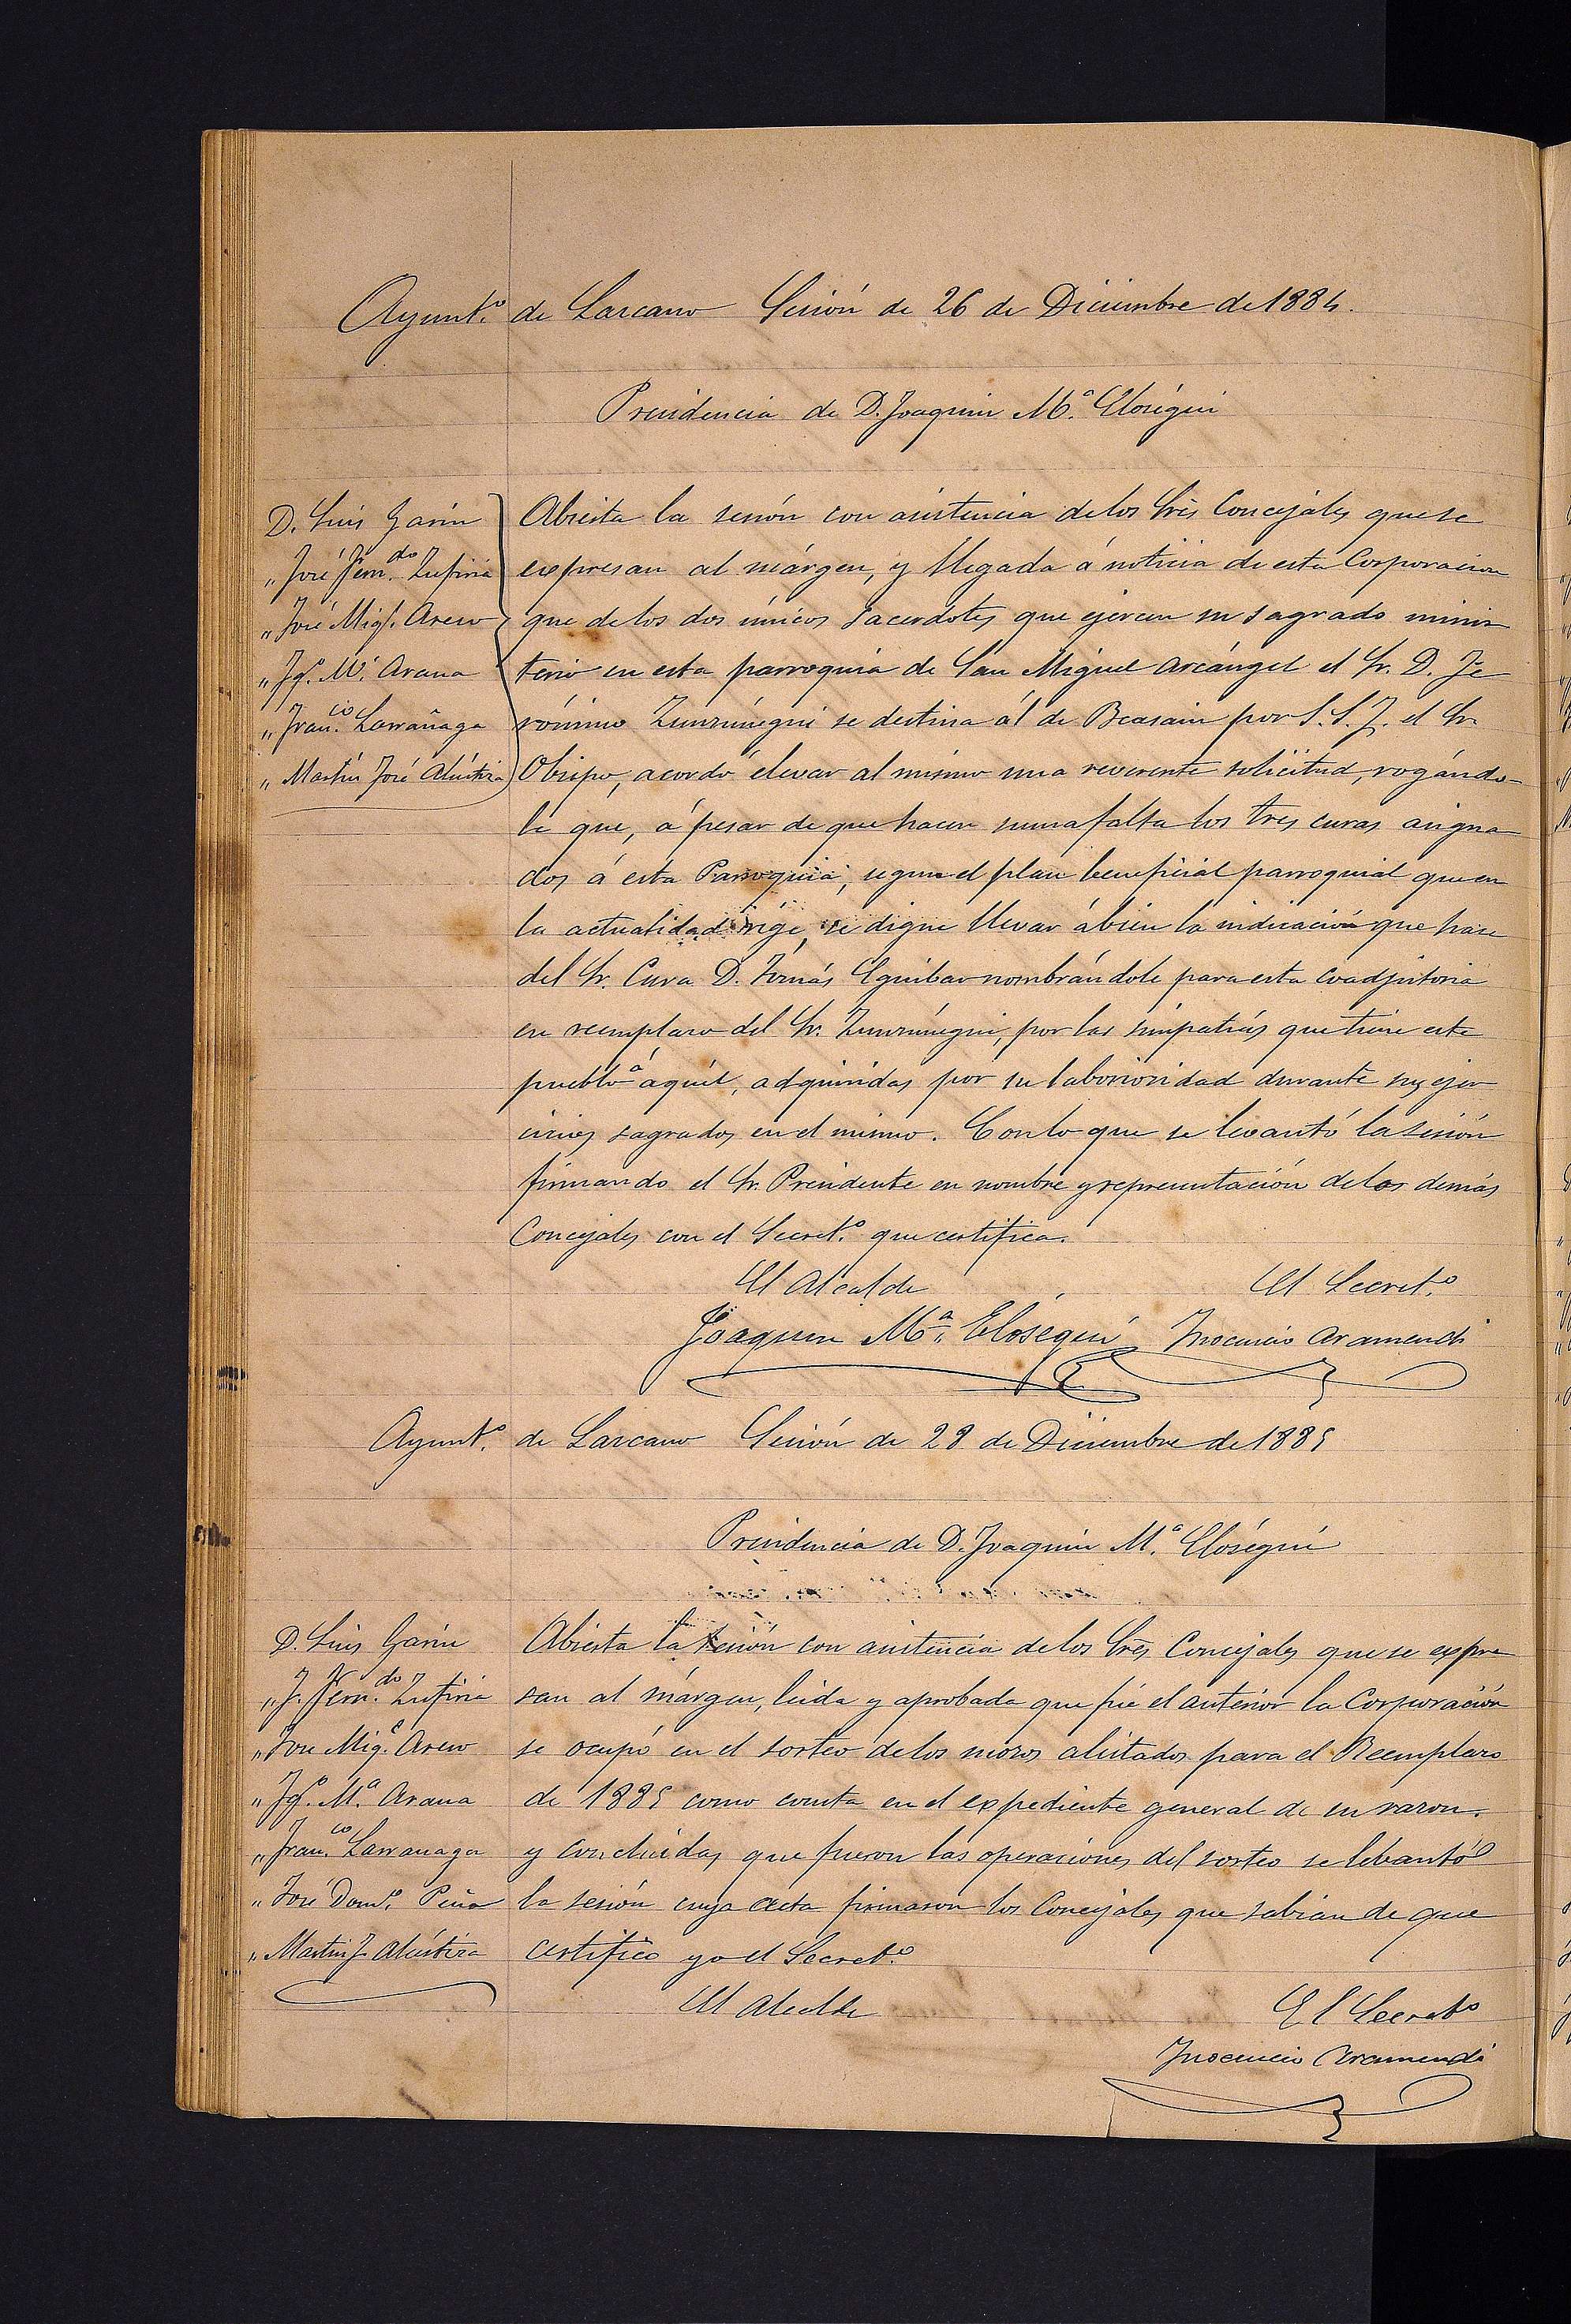 Ayunt.º de Lazcano Sesión de 26 de Diciembre de 1884.
Presidencia de D. Joaquin M.ª Eloségui
D. Luis Garin
" José Fern.do Zufiria
" José Mig.l Areso
" Jq.n M.ª Arana
" Fran.co Larrañaga
" Martin José Alústiza
Abierta la sesión con asistencia de los Srēs Concejales que se
expresan al márgen, y llegada á noticia de esta Corporacion
que de los dos únicos sacerdotes que ejercen su sagrado minis
terio en esta parroquia de San Miguel Arcángel el Sr. D. Je
rónimo Zunzúnegui se destina ál de Beasain por S.S.I. el Sr.
Obispo, acordó elevar al mismo una reverente solicitud, rogándo-
le que, á pesar de que hacen suma falta los tres curas asigna
dos á esta Parroquia, segun el plan beneficial parroquial que en
la actualidad rige, se digne llevar á bien la indicación que hace
del Sr. Cura D. Tomás Eguibar nombrándole para esta coadjutoria
en reemplazo del Sr. Zunzúnegui, por las simpatías que tiene este
pueblo á aquél, adquiridas por su laboriosidad durante sus ejer
cicios sagrados en el mismo. Con lo que se levantó la sesión
firmando el Sr. Presidente en nombre y representación de los demás
Concejales con el Secret.º que certifica.
El Alcalde El Secret.º
Joaquin M.ª Elósegui Inocencio Aramendi
Ayunt.º de Lazcano Sesión de 28 de Diciembre de 1885
Presidencia de D. Joaquin M.ª Elósegui
D. Luis Garin
" J. Fern.do Zufiria
" José Mig.l Areso
" Jq.n M.ª Arana
" Fran.co Larrañaga
" José Dom.º Peña
" Martin J. Alústiza
Abierta la sesión con asistencia de los Srēs Concejales que se expre
san al márgen, leida y aprobada que fué el anterior la Corporación
se ocupó en el sorteo de los mozos alistados para el Reemplazo
de 1885 como consta en el expediente general de su razon.
y concluidas que fueron las operaciones del sorteo se lebantó
la sesión cuya acta firmaron los Concejales que sabian de que
certifico yo el Secret.º
El Alcalde El Secret.º
Inocencio Aramendi